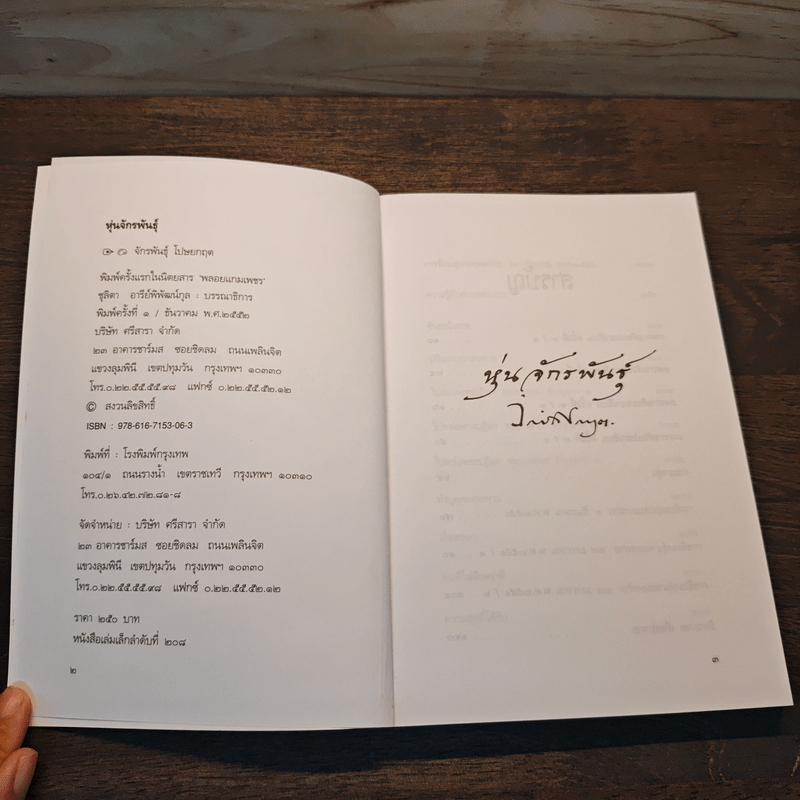 หุ่นจักรพันธุ์
จักรพันธุ์ โปษยกฤต
พิมพ์ครั้งแรกในนิตยสาร "พลอยแกมเพชร"
ชุลิตา อารีย์พิพัฒน์กุล : บรรณาธิการ
พิมพ์ครั้งที่ ๑ / ธันวาคม พ.ศ.๒๕๕๒
บริษัท ศรีสารา จำกัด
๒๓ อาคารชาร์มส ซอยชิดลม ถนนเพลินจิต
แขวงลุมพินี เขตปทุมวัน กรุงเทพฯ ๑๐๓๓๐
โทร.๐.๒๒.๕๕.๕๕.๙๘ แฟกซ์ ๐.๒๒.๕๕.๕๒.๑๒
© สงวนลิขสิทธิ์
ISBN : 978-616-7153-06-3
พิมพ์ที่ : โรงพิมพ์กรุงเทพ
๑๐๔/๑ ถนนรางน้ำ เขตราชเทวี กรุงเทพฯ ๑๐๓๑๐
โทร.๐.๒๖.๔๒.๗๒.๘๑-๘
จัดจำหน่าย : บริษัท ศรีสารา จำกัด
๒๓ อาคารชาร์มส ซอยชิดลม ถนนเพลินจิต
แขวงลุมพินี เขตปทุมวัน กรุงเทพฯ ๑๐๓๓๐
โทร.๐.๒๒.๕๕.๕๕.๙๘ แฟกซ์ ๐.๒๒.๕๕.๕๒.๑๒
ราคา ๒๕๐ บาท
หนังสือเล่มเล็กลำดับที่ ๒๐๘
๒
หุ่นจักรพันธุ์
๓